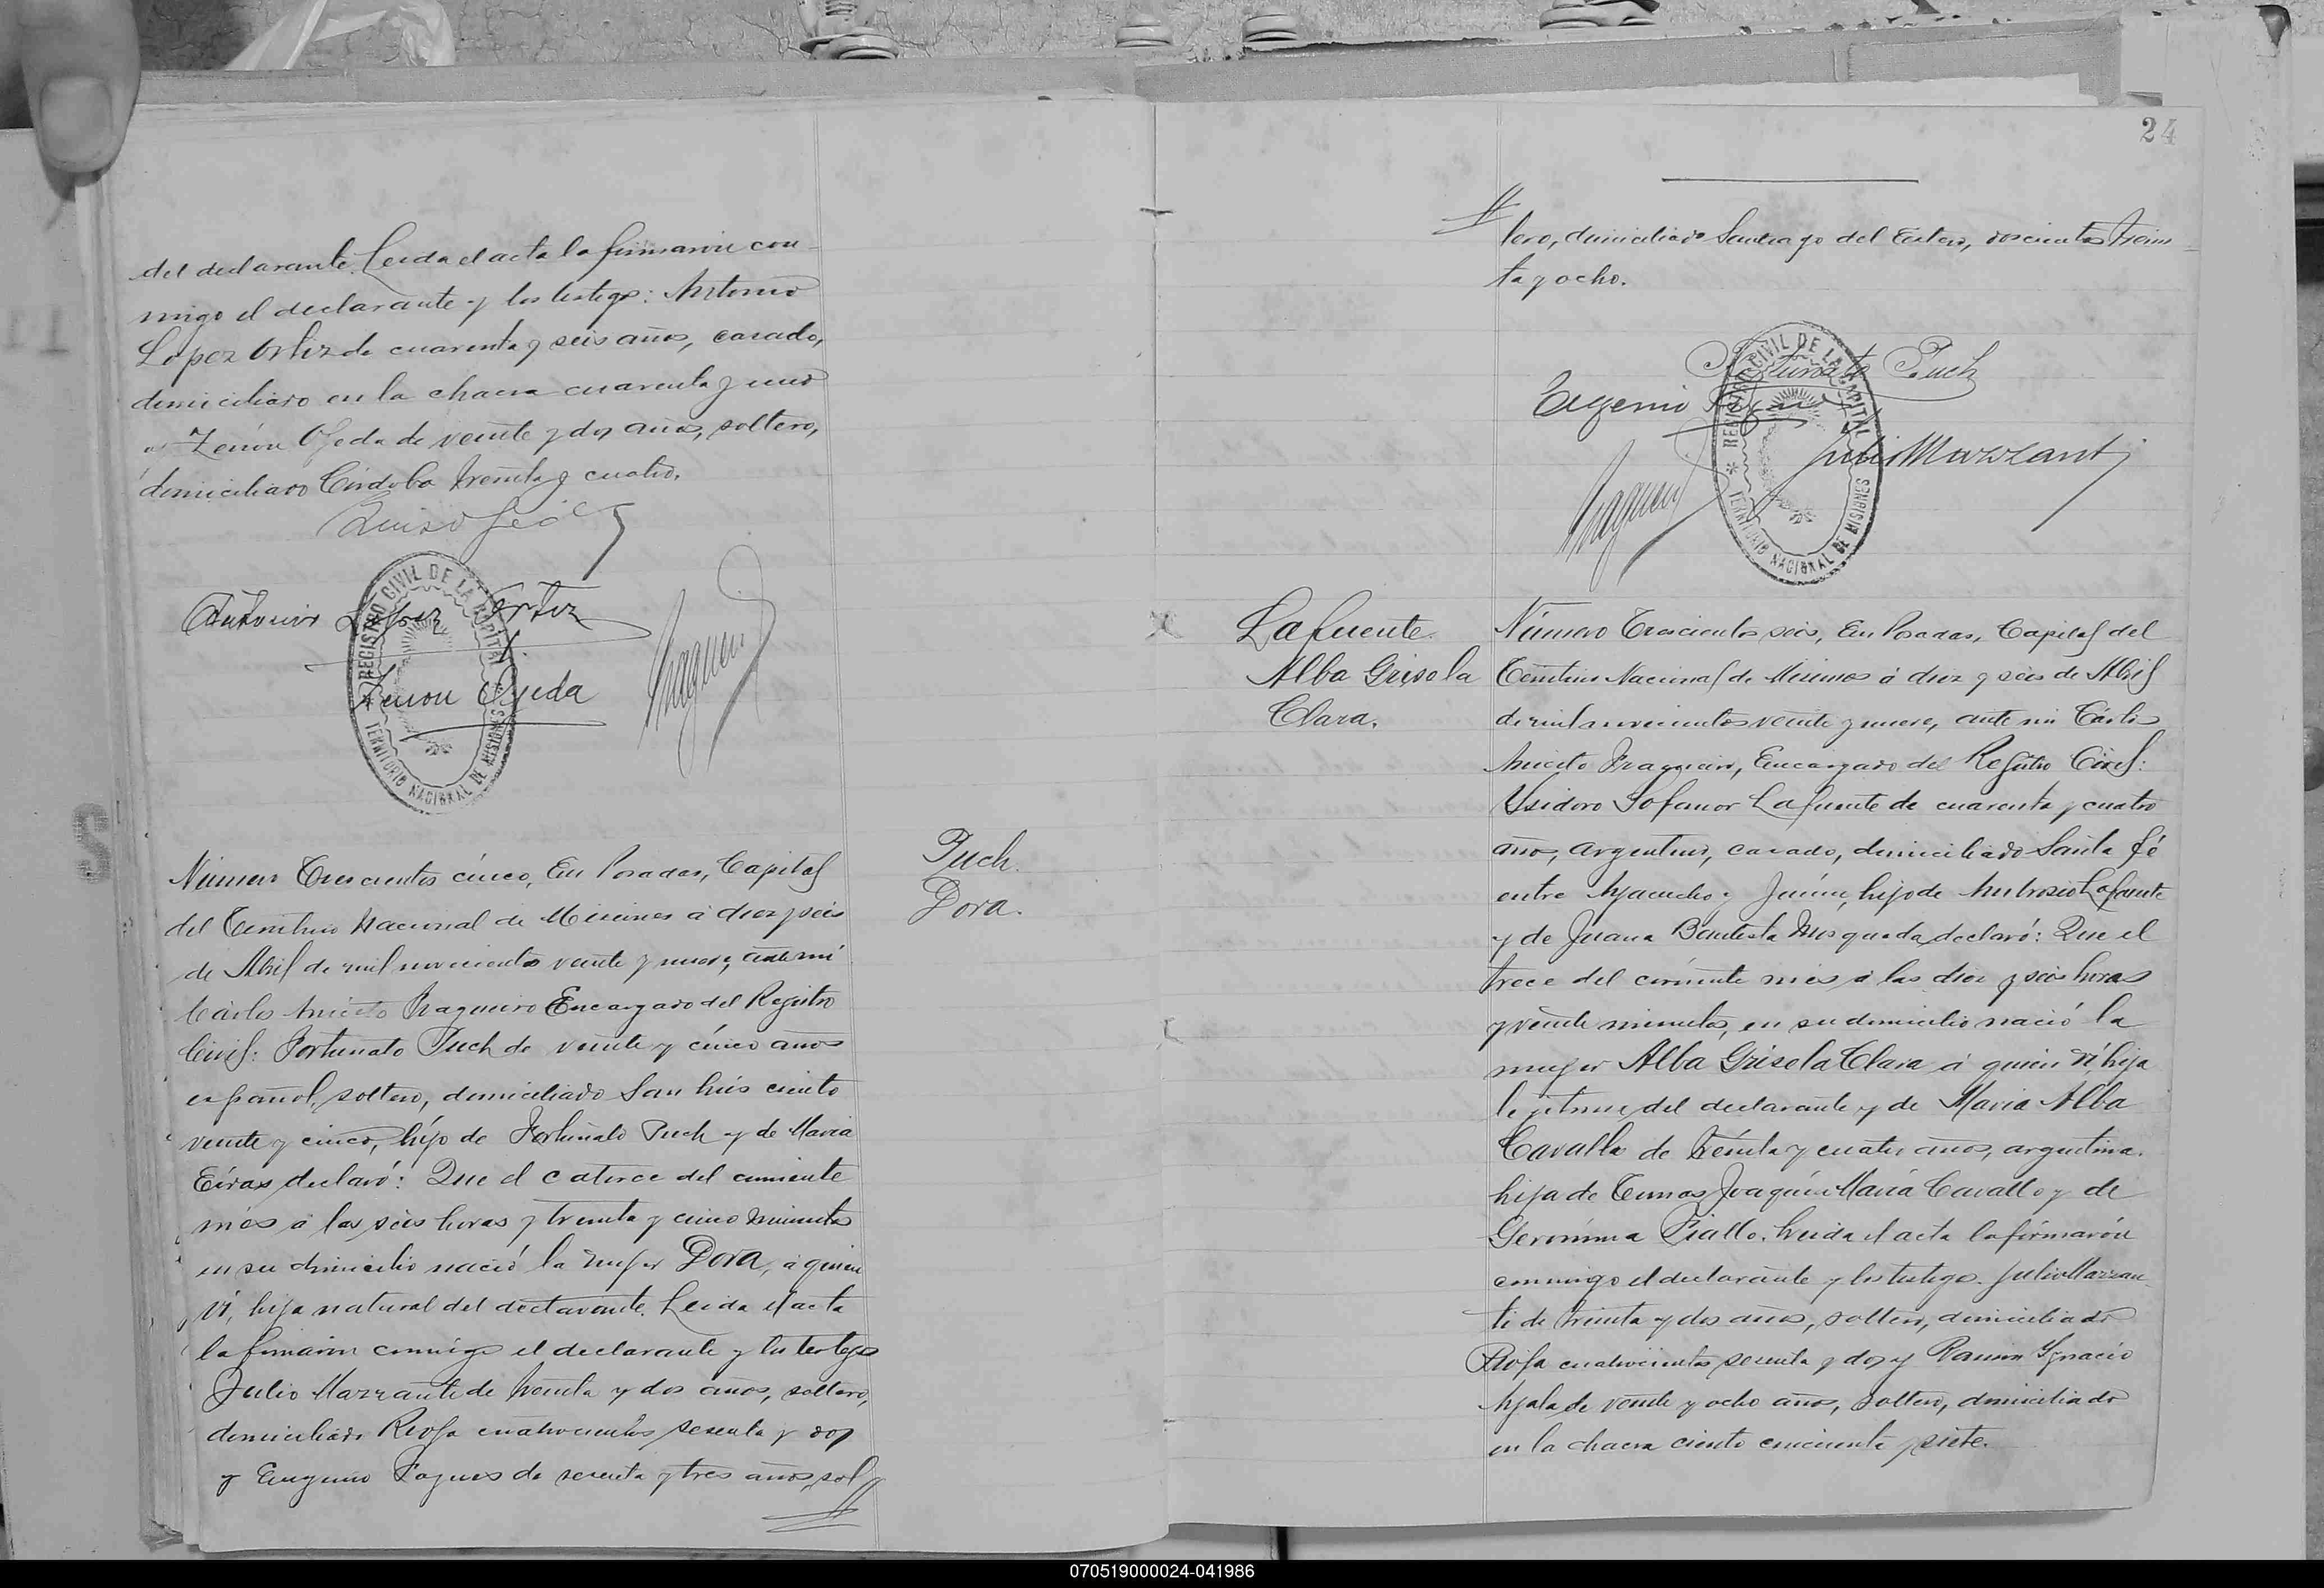 del declarante. Leida el acta la firmaron con-
migo el declarante y los testigos: Antonio
Lopez Ortiz de cuarenta y seis años, casado,
domiciliado en la chacra cuarenta y uno
y Zenón Ojeda de veinte y dos años, soltero,
domiciliado Córdoba treinta y cuatro.
Antonio Lopez Ortiz
Zenon Ojeda
REGISTRO CIVIL DE LA CAPITAL
TERRITORIO NACIONAL DE MISIONES
Puch
Dora.
Número Trescientos cinco, En Posadas, Capital
del Territorio Nacional de Misiones á diez y seis
de Abril de mil novecientos veinte y nueve, ante mi
Cárlos Aniceto Fragueiro Encargado del Registro
Civil: Fortunato Puch de veinte y cinco años
español, soltero, domiciliado San Luis ciento
veinte y cinco, hijo de Fortunato Puch y de Maria
Eiras declaró: Que el catorce del corriente
mes á las seis horas y treinta y cinco minutos
en su domicilio nació la mujer Dora, á quien
ví, hija natural del declarante. Leida el acta
la firmaron conmigo el declarante y los testigos
Julio Mazzanti de treinta y dos años, soltero,
domiciliado Rioja cuatrocientos sesenta y dos
y Eugenio Pagues de sesenta y tres años, sol
24
tero, domiciliado Santiago del Estero, doscientos trein-
ta y ocho.
Fortunato Puch
Eugenio
Julio Mazzanti
REGISTRO CIVIL DE LA CAPITAL
TERRITORIO NACIONAL DE MISIONES
Lafuente
Alba Grisela
Clara.
Número Trescientos seis, En Posadas, Capital del
Territorio Nacional de Misiones á diez y seis de Abril
de mil novecientos veinte y nueve, ante mi Cárlos
Aniceto Fragueiro, Encargado del Registro Civil:
Ysidoro Sofanor Lafuente de cuarenta y cuatro
años, argentino, casado, domiciliado Santa Fé
entre Ayacucho y Junin, hijo de Ambrosio Lafuente
y de Juana Bautista Mosqueda, declaró: Que el
trece del corriente mes á las diez y seis horas
y veinte minutos, en su domicilio nació la
mujer Alba Grisela Clara á quien ví hija
legitima del declarante y de Maria Alba
Cavallo de treinta y cuatro años, argentina.
hija de Tomas Joaquin Maria Cavallo y de
Gerónima Piallo. Leida el acta la firmarón
conmigo el declarante y los testigos. Julio Mazzan-
ti de treinta y dos años, soltero, domiciliado
Rioja cuatrocientos sesenta y dos y Ramon Ygnacio
Ayala de veinte y ocho años, soltero, domiciliado
en la chacra ciento cincuenta y siete.
070519000024-041986